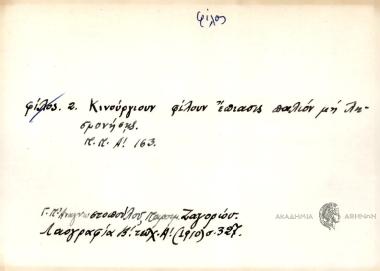 φίλος
φίλος. 2. Κινούργιουν φίλουν ἔπιασις παλιόν μή λη-
σμονήσῃς.
Π.Π. Α! 163.
Γ. Π. Ἀναγνωστοπούλου Παροιμ. Ζαγορίου.
Λαογραφία Β! τεῦχ. Α! (1910) σ. 327.
ΑΚΑΔΗΜΙΑ ΑΘΗΝΩΝ